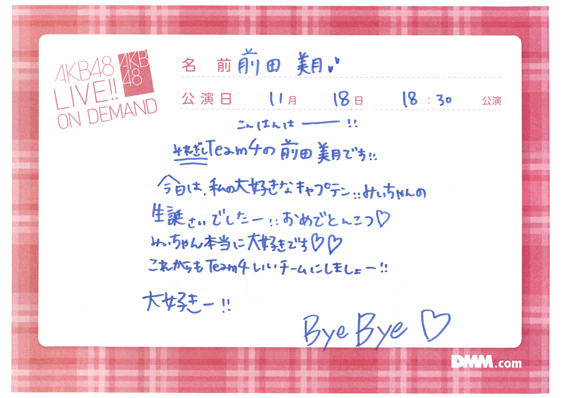 AKB48
LIVE!!
ON DEMAND
AKB
48
名 前 前田 美月♪
公演日 11月 18日 18:30 公演
こんばんはーーー!!
みれぎしTeam4の前田美月です!!
今日は、私の大好きなキャプテン!!みぃちゃんの
生誕さいでしたー!!おめでとんこつ♡
みぃちゃん本当に大好きです♡♡
これからもTeam4いいチームにしましょー!!
大好きー!!
Bye Bye ♡
DMM.com